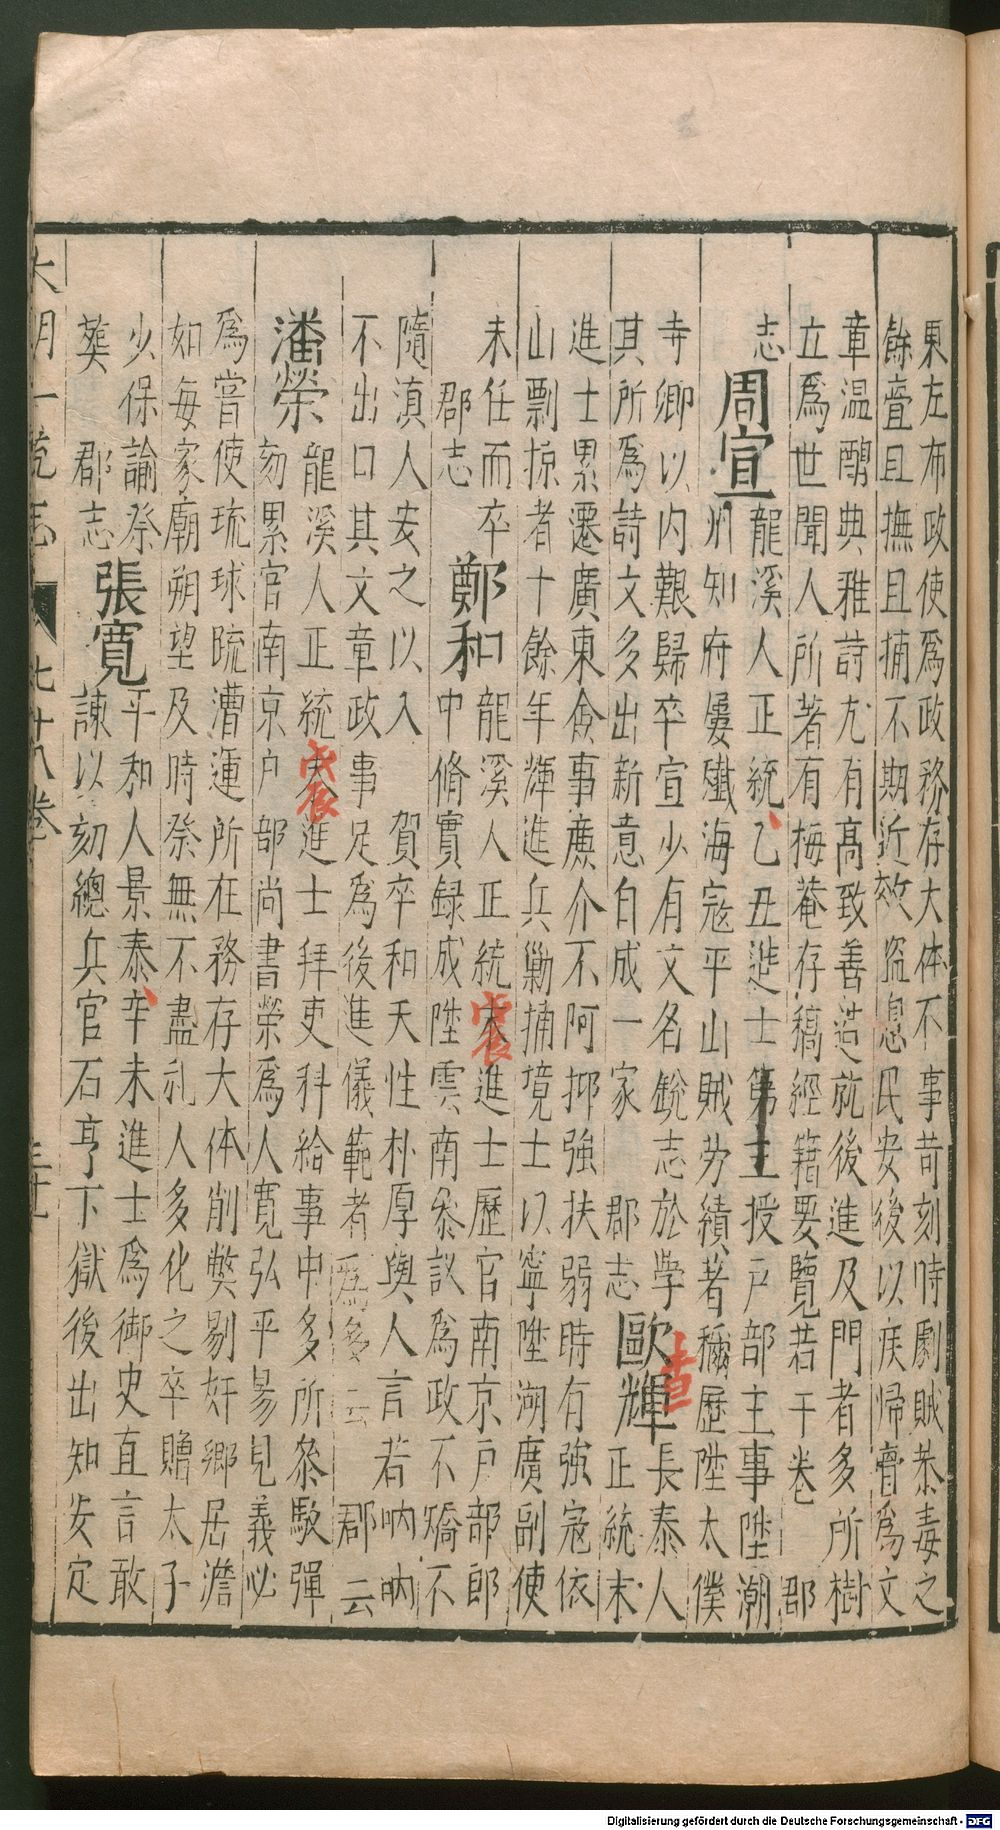 東左布政使爲政務存大体不事苛刻時劇賊荼毒之
餘耋且撫且捕不期近效盜息民安後以疾歸膏爲文
章温醇典雅詩尤有高致善造就後進及門者多所樹
立爲世聞人所著有梅菴存稿經籍要覽若干卷 郡
志 周宣 龍溪人正統乙丑進士第 授户部主事陞潮
州知府屢殱海寇平山賊劳績著稱歷陞太僕
寺卿以内艱歸卒宣少有文名銳志於學
其所爲詩文多出新意自成一家 郡志 歐輝 長泰人
正統末
進士累遷廣東僉事亷介不阿抑強扶弱時有強寇依
山剽掠者十餘年輝進兵勦捕境士以寧陞湖廣副使
未任而卒 郡志 鄭和 龍溪人正統戊辰進士歷官南京户部郎
中脩實録成陞雲南叅議爲政不矯不
隨滇人安之以入 賀卒和天性朴厚與人言若吶吶
不出口其文章政事足爲後進儀範者爲多云 郡云
潘榮 龍溪人正統戊辰進士拜吏科給事中多所叅駁彈
刻累官南京户部尚書榮爲人寛弘平易見義必
爲嘗使琉球䟽漕運所在務存大体削獘剔奸鄉居澹
如每家廟朔望及時祭無不盡礼人多化之卒贈太子
少保諭祭
葬 郡志 張寛 平和人景泰辛未進士爲御史直言敢
諫以刻總兵官石亨下獄後出知安定
大明一統志 七十八卷
Digitalisierung gefördert durch die Deutsche Forschungsgemeinschaft - DFG